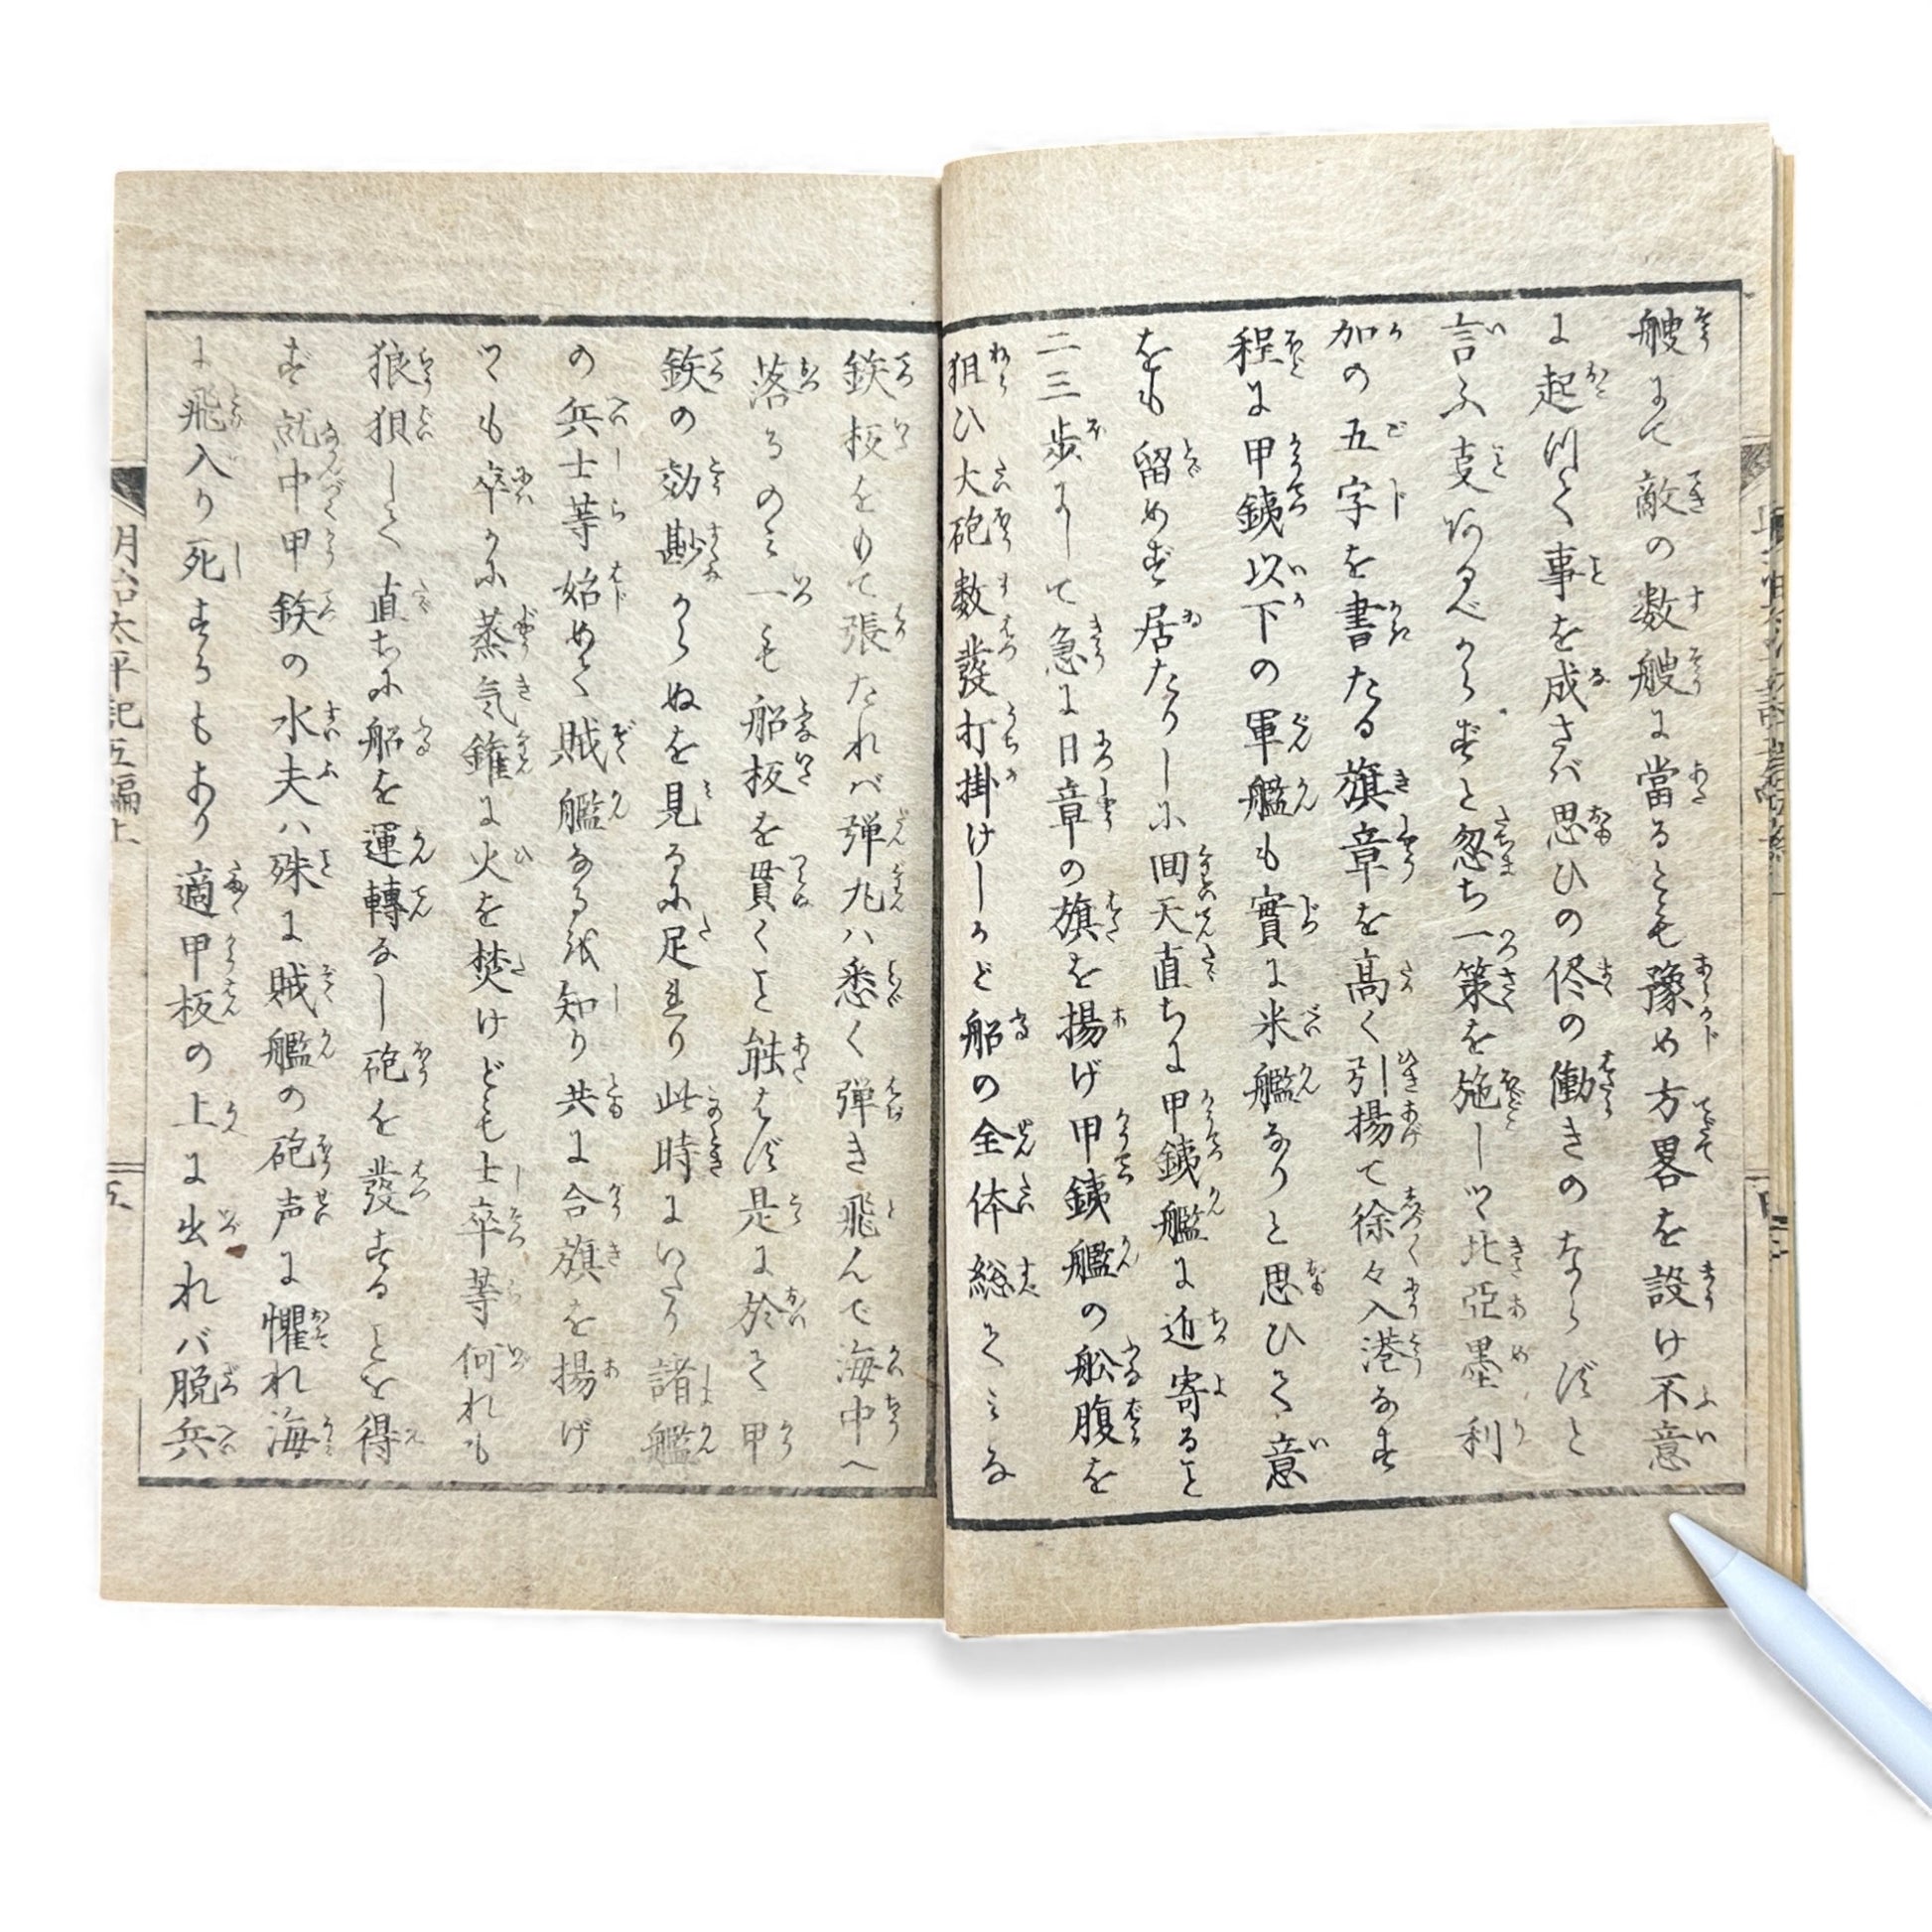 艘にて敵の数艘に當るとも豫め方畧を設け不意
に起つて事を成さバ思ひの侭の働きのならずと
言ふ支あるべからずと忽ち一策を施しツ北亞墨利
加の五字を書たる旗章を高く引揚て徐々入港なす
程に甲銕以下の軍艦も實に米艦なりと思ひて意
をも留めず居たりしに回天直ちに甲銕艦に迫寄ると
二三歩にして急に日章の旗を揚げ甲銕艦の舩腹を
狙ひ大砲数發打掛けしかど船の全体総てミな
鉄板をもて張たれバ弾丸ハ悉く弾き飛んで海中へ
落るのミ一も船板を貫くこと能はず是に於て甲
鉄の効尠からぬを見るに足れり此時にいたり諸艦
の兵士等始めて賊艦なるを知り共に合旗を揚げ
ツも卒かに蒸気鑵に火を焚けども士卒等何れも
狼狽して直ちに船を運轉なし砲を發することを得
ず就中甲鉄の水夫ハ殊に賊艦の砲声に懼れ海
に飛入り死するもあり適甲板の上に出れバ脱兵
明治太平記五編上
五